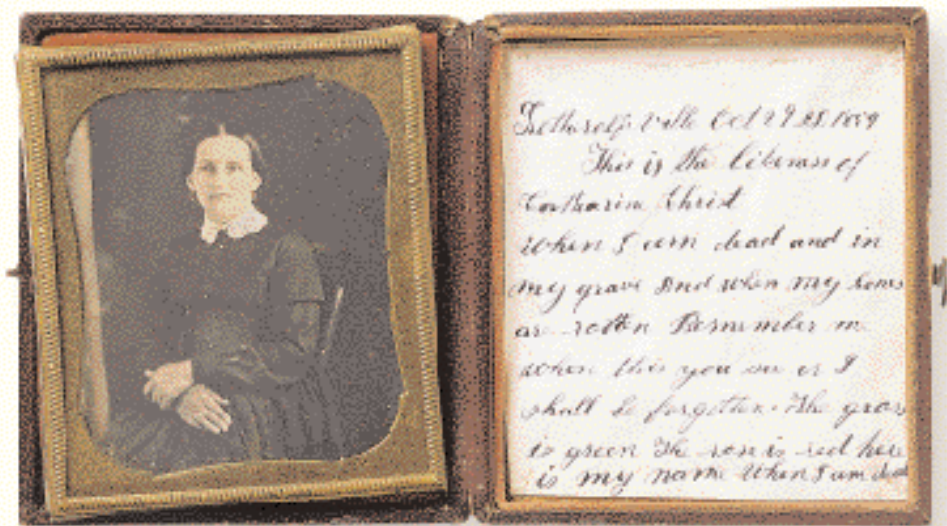 Oct 29
This is the likeness of
Catharine Christ
When I am dead and in
my grave And when my bones
are rotten Remember me
when this you see or I
shall be forgotten. The grass
is green The rose is red here
is my name When I am dead